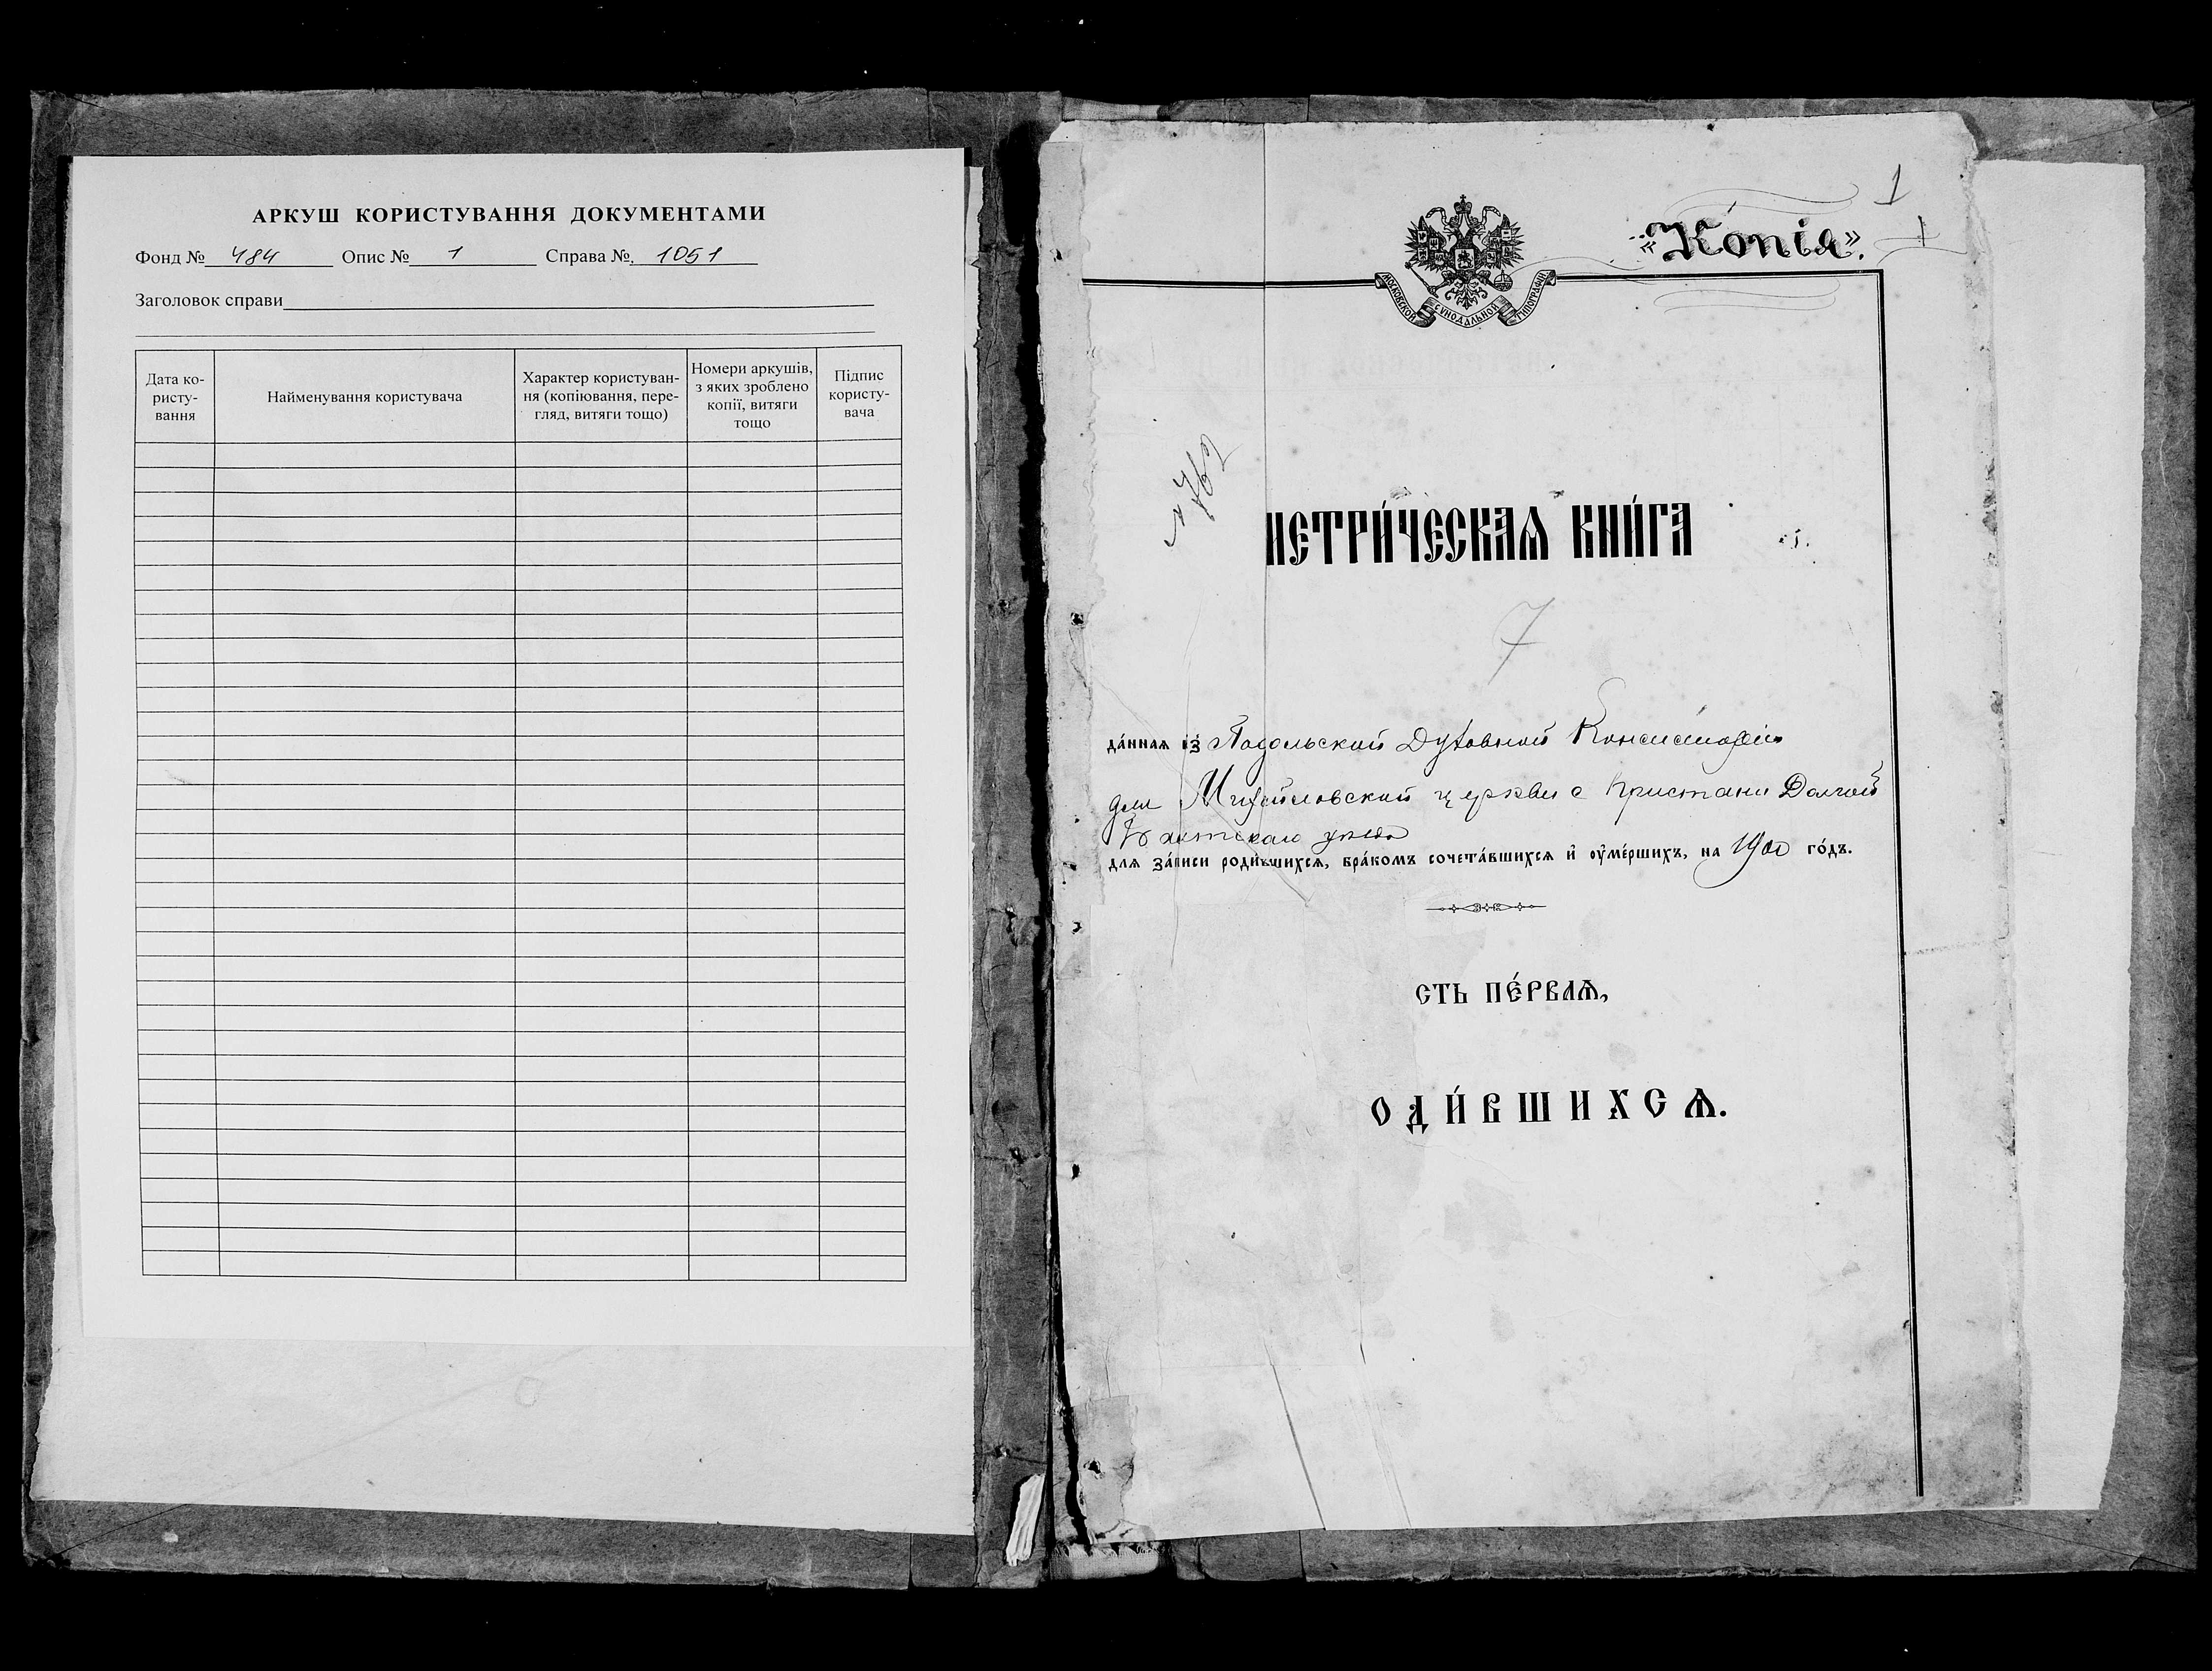 АРКУШ КОРИСТУВАННЯ ДОКУМЕНТАМИ
Фонд № 484 Опис № 1 Справа № 1051
Заголовок справи
Дата ко-
ристу-
вання
Найменування користувача
Характер користуван-
ня (копіювання, пере-
гляд, витяги тощо)
Номери аркушів,
з яких зроблено
копії, витяги
тощо
Підпис
користу-
вача
1
1
«Копія».
МОСКОВСКОЙ СѴНОДАЛЬНОЙ ТИПОГРАФІИ
№ 762
МЕТРИ́ЧЕСКАѦ КНИ́ГА
7
да́ннаѧ и҆з̾ Подольской Духовной Консисторіи
для Михайловской церкви с Кристани Долгой
уѣзда
длѧ за́писи роди́вшихсѧ, бра́комъ сочета́вшихсѧ и҆ ᲂу҆ме́ршихъ, на 1900 го́дъ.
СТЬ ПЕ́РВАѦ,
ОДИ́ВШИХСѦ.